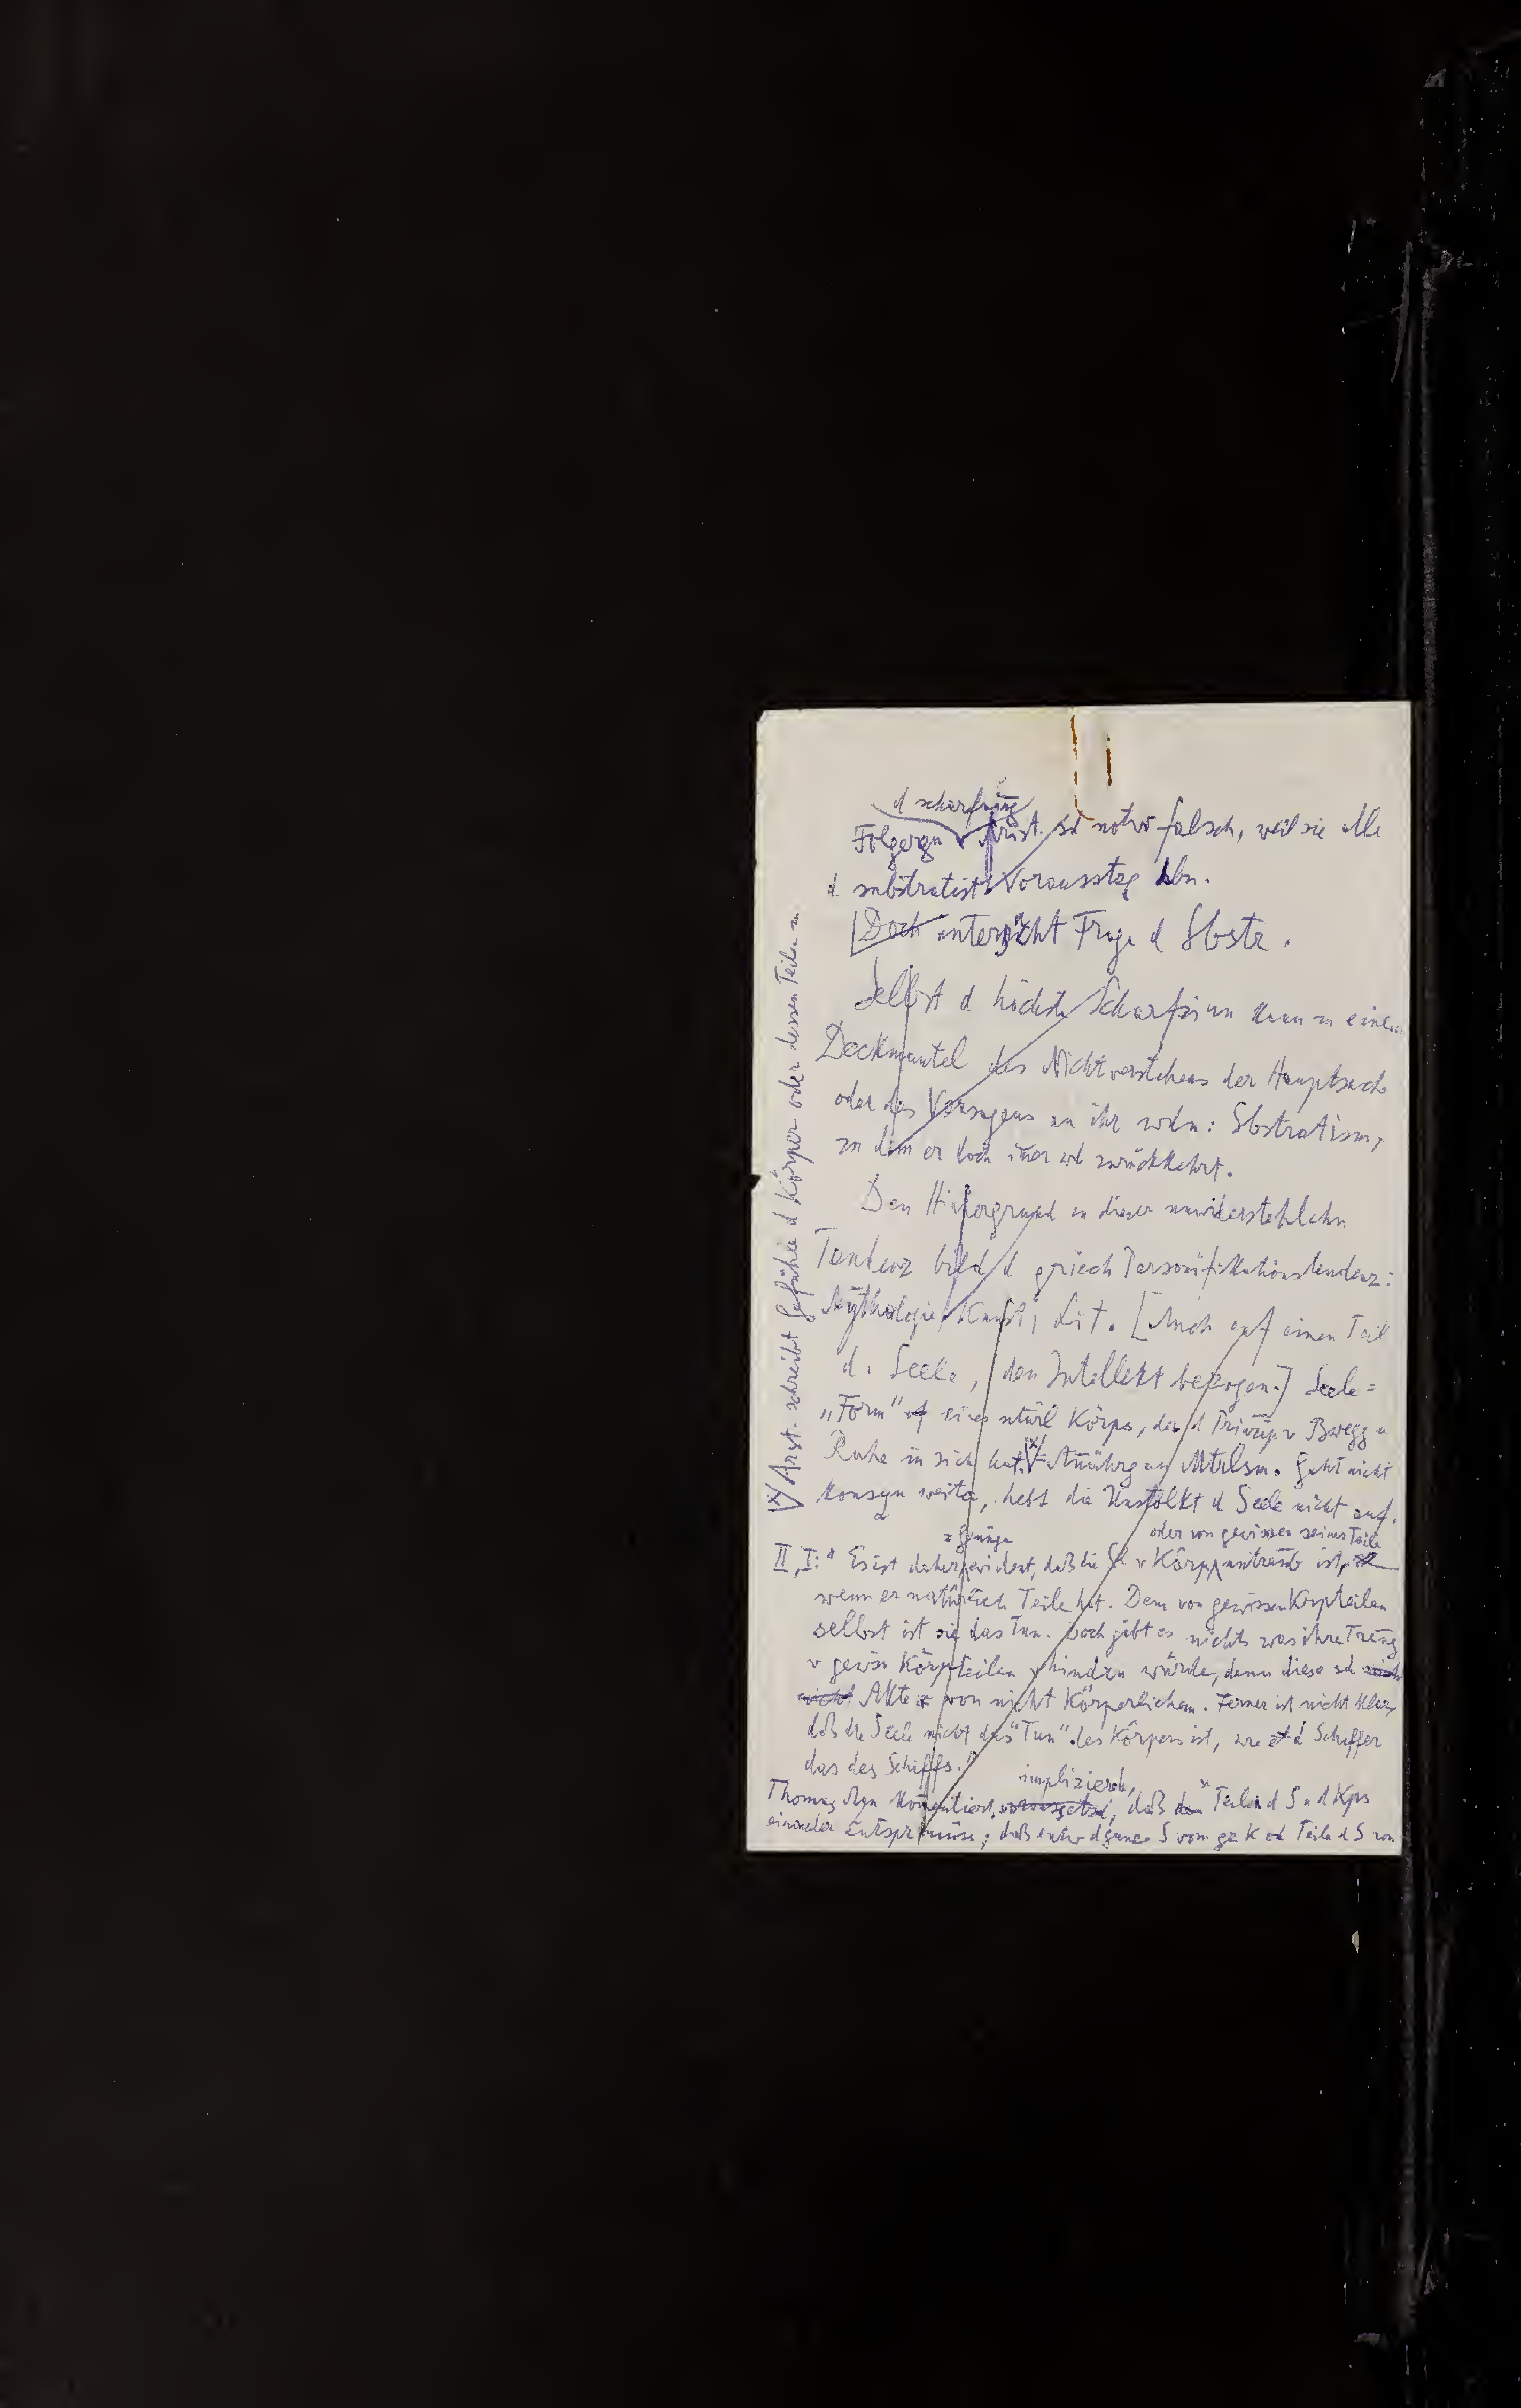 d scharfsing
Folgergn v Arist. sd notw falsch, weil sie alle
d substratist Voraussetzg hbn.
[Doch untersucht Frage d Sbstr.
Selbst d höchste Scharfsinn kann zu einem
Deckmantel des Nichtverstehens der Hauptsache
oder des Versagens an ihr wdn: Sbstratism,
zu dem er doch im̄er wd zurückkehrt.
Den Hintergrund zu dieser unwiderstehlichn
Tendenz bild d griech Personifikationstendenz:
Mythologie, Kunst, Lit. [Auch auf einen Teil
d. Seele, den Intellekt bezogen.] Seele =
„Form" eines ntürl Körps, der d Prinzip v Bwegg u
Ruhe in sich hat. = Annährg an Mtrlsm. Geht nicht
konsqu weiter, hebt die Unstofflkt d Seele nicht auf.
z Genüge
oder von gewissen seiner Teile
II, I: " Es ist daher evident, daß die Sl v Körp untrenb ist,
wenn er natürlich Teile hat. Denn von gewissen Körpteilen
selbst ist sie das Tun. Doch gibt es nichts was ihre Treng
v gewiss Körpteilen vhindrn würde, denn diese sd nicht
nicht Akte von nicht Körperlichem. Ferner ist nicht klar,
daß die Seele nicht das "Tun" des Körpers ist, wie d Schiffer
das des Schiffs."
implizierd,
Thomas Aqn kom̄entiert, voraussetzd, daß den Teilen d S u d Kps
einander entspr müss; daß entw d ganze S vom gz K od Teile d S von
Arst. schreibt Gefühle d Körper oder dessen Teilen zu